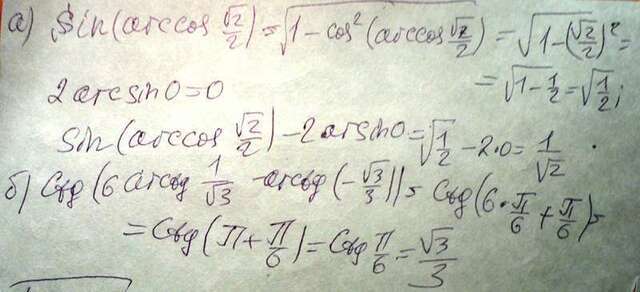 а) Sin(arccos √2/2) = √(1-cos²(arccos √2/2)) = √(1-(√2/2)²) =
= √(1-1/2) = √(1/2);
2arcsin0=0
Sin(arccos √2/2) - 2arsin0 = √(1/2) - 2·0 = 1/√2 .
б) Ctg(6 arctg 1/√3 - arctg(-√3/3)) = Ctg(6·π/6 + π/6) =
= Ctg(π + π/6) = Ctg π/6 = √3/3